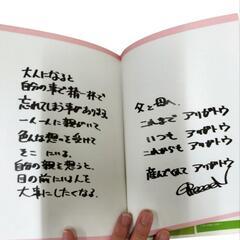 大人になると
自分の事で精一杯で
忘れてしまう事があります。
一人一人親がいて、
色んな想いを受けて
そこにいる。
自分の親を想うと、
目の前にいる人を
大事にしたくなる。
父と母へ。
これまで アリガトウ
いつも アリガトウ
これからも アリガトウ
産んでくれて アリガトウ